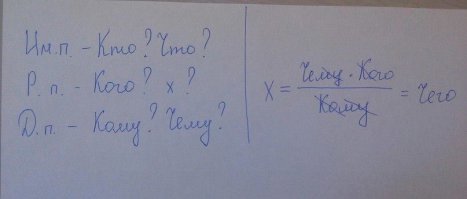 Им.п. - Кто? Что?
Р. п. - Кого? x ?
Д.п. - Кому? Чему?
X = Чему · Кого / Кому = Чего